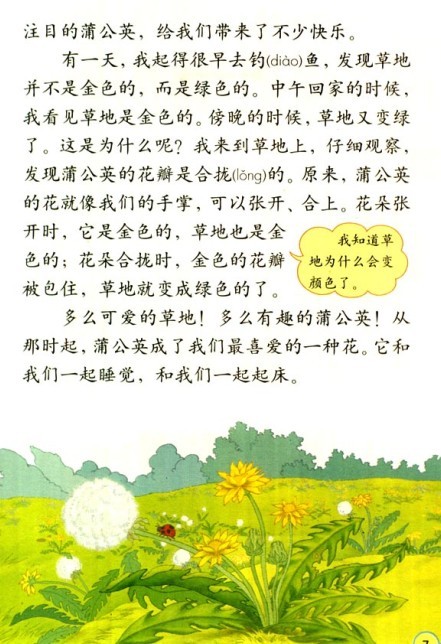 注目的蒲公英，给我们带来了不少快乐。
有一天，我起得很早去钓(diào)鱼，发现草地
并不是金色的，而是绿色的。中午回家的时候，
我看见草地是金色的。傍晚的时候，草地又变绿
了。这是为什么呢？我来到草地上，仔细观察，
发现蒲公英的花瓣是合拢(lǒng)的。原来，蒲公英
的花就像我们的手掌，可以张开、合上。花朵张
开时，它是金色的，草地也是金
色的；花朵合拢时，金色的花瓣
被包住，草地就变成绿色的了。
我知道草
地为什么会变
颜色了。
多么可爱的草地！多么有趣的蒲公英！从
那时起，蒲公英成了我们最喜爱的一种花。它和
我们一起睡觉，和我们一起起床。
7